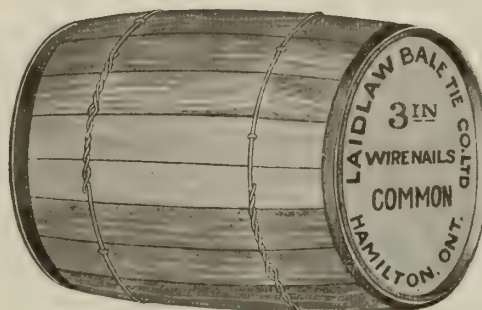 LAIDLAW BALE TIE CO. LTD
3 IN
WIRE NAILS
COMMON
HAMILTON, ONT.